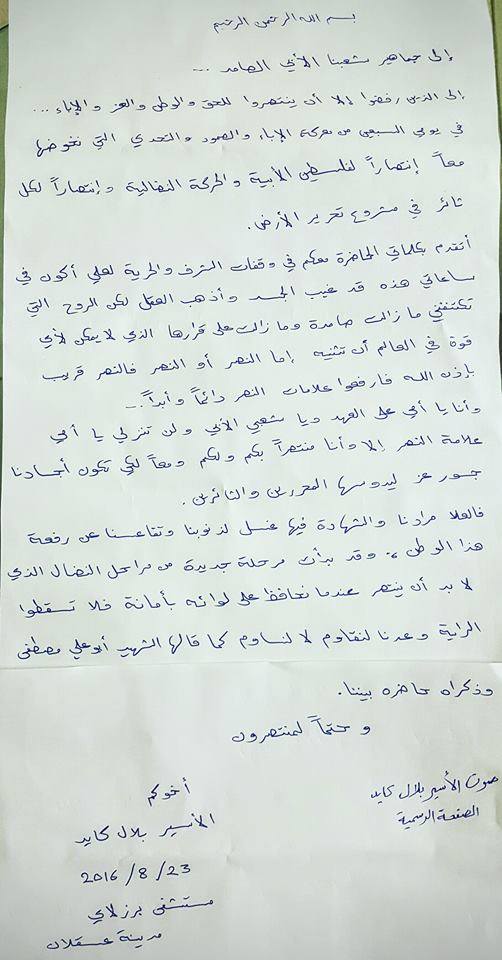 بسم الله الرحمن الرحيم
إلى جماهير شعبنا الأبي الصامد ...
إلى الذين رفضوا إلا أن ينتصروا للحق والوطن والعز والإباء ...
في يومي السبعين من معركة الإباء والصمود والتحدي التي نخوضها
معاً إنتصاراً لفلسطين الأبية والحركة النضالية وإنتصاراً لكل
ثائر في مشروع تحرير الأرض.
أتقدم بكلماتي الحاضرة معكم في وقفات الشرف والحرية لعلي أكون في
ساعاتي هذه قد غيب الجسد وأذهب العقل لكن الروح التي
تكتنفني ما زالت صامدة وما زالت على قرارها الذي لا يمكن لأي
قوة في العالم أن تثنيه إما النصر أو النصر فالنصر قريب
بإذن الله فارفعوا علامات النصر دائماً وأبداً ...
وأنا يا أمي على العهد ويا شعبي الأبي ولن تنزلي يا أمي
علامة النصر إلا وأنا منتصراً بكم ولكم ومعاً لكي تكون أجسادنا
جسور عز ليدوسها المحررين والثائرين.
فالعلا مرادنا والشهادة فيها غسل لذنوبنا وتقاعسنا عن رفعة
هذا الوطن، وقد بدأت مرحلة جديدة من مراحل النضال الذي
لا بد أن ينتصر عندما نحافظ على لوائه بأمانة فلا تسقطوا
الراية وعدنا لنقاوم لا لنساوم كما قالها الشهيد أبو علي مصطفى
وذكراه حاضره بيننا.
و حتماً لمنتصرون
صوت الأسير بلال كايد
الصفحة الرسمية
أخوكم
الأسير بلال كايد
2016 / 8 / 23
مستشفى برزلاي
مدينة عسقلان